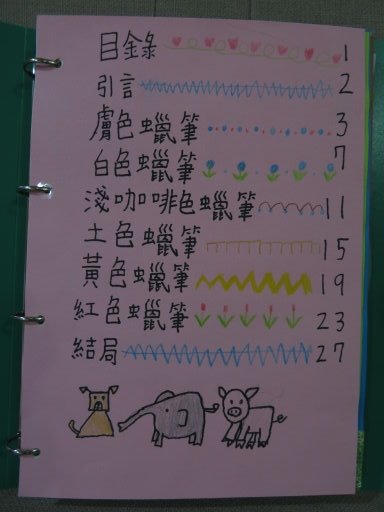 目錄 1
引言 2
膚色蠟筆 3
白色蠟筆 7
淺咖啡色蠟筆 11
土色蠟筆 15
黃色蠟筆 19
紅色蠟筆 23
結局 27